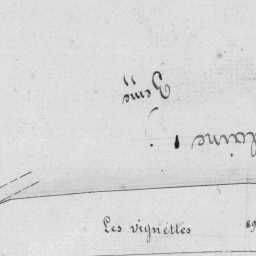 2eme
laine
Les vignettes